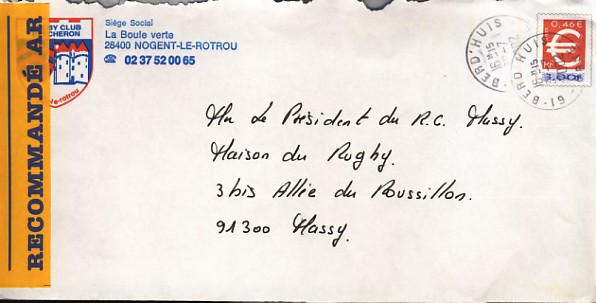 RECOMMANDÉ AR
BY CLUB
CHERON
le-rotrou
Siège Social
La Boule verte
28400 NOGENT-LE-ROTROU
☎ 02 37 52 00 65
BERD'HUIS
16H15
BERD'HUIS
16H15
61
0,46€
3,00F
Mr Le Président du R.C. Massy.
Maison du Rugby.
3 bis Allée du Roussillon.
91300 Massy.